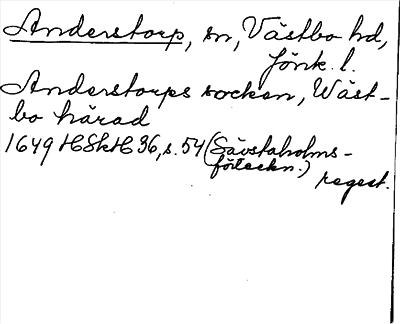 Anderstorp, sn, Västbo hd,
Jönk. l.
Anderstorps socken, Wäst-
bo härad
1649 HSkH 36, s. 54 (Sävstaholms-
förteckn.)
regest.